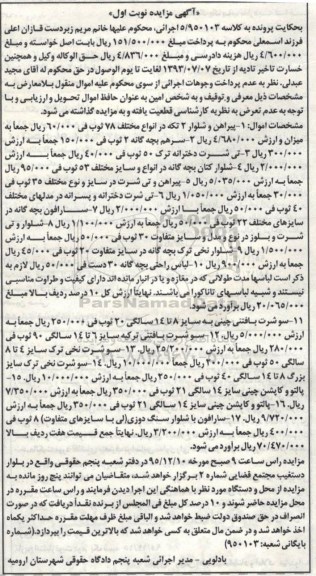 «آگهی مزایده نوبت اول»
بحکایت پرونده به کلاسه ۵/۹۵۰۱۰۳ اجرائی، محکوم علیها خانم مریم زبردست قازان اعلی
فرزند اسمعلی محکوم به پرداخت مبلغ ۱۵۱/۵۰۰/۰۰۰ ریال بابت اصل خواسته و مبلغ
۴/۶۰۰/۰۰۰ ریال هزینه دادرسی و مبلغ ۴/۸۳۶/۰۰۰ ریال حق الوکاله وکیل و همچنین
خسارت تاخیر تادیه از تاریخ ۱۳۹۳/۰۷/۰۷ لغایت تا یوم الوصول در حق محکوم له آقای مجید
عبدلی، نظر به عدم پرداخت وجوهات اجرائی از سوی محکوم علیه اموال منقول بلامعارض به
مشخصات ذیل معرفی و توقیف و به شخص امین به عنوان حافظ اموال تحویل و ارزیابی و با
توجه به عدم تعرض به نظریه کارشناسی قطعیت یافته و به مزایده گذاشته می شود.
مشخصات اموال: ۱-پیراهن و شلوار ۲ تکه در انواع مختلف ۷۸ توپ فی ۶۰/۰۰۰ ریال جمعاً به
میزان و ارزش ۴/۶۸۰/۰۰۰ ریال ۲-سرهم بچه گانه ۲ توپ فی ۱۵۰/۰۰۰ ریال جمعاً به ارزش
۳۰۰/۰۰۰ ریال ۳-تی شرت دخترانه ترک ۵۰ توپ فی ۴۰/۰۰۰ ریال جمعاً به ارزش
۲/۰۰۰/۰۰۰ ریال ۴-شلوار کتان بچه گانه در انواع و سایز مختلف ۵۳ توپ فی ۹۵/۰۰۰ ریال
جمعاً به ارزش ۵/۰۳۵/۰۰۰ ریال ۵-پیراهن و تی شرت در سایز و نوع مختلف ۳۵ توپ فی
۳۰/۰۰۰ جمعاً به ارزش ۱/۰۵۰/۰۰۰ ریال ۶-تی شرت دخترانه و پسرانه در مدلهای مختلف
۴۰ توپ فی ۵۰/۰۰۰ ریال جمعاً به ارزش ۲/۰۰۰/۰۰۰ ریال ۷-سارافون بچه گانه در
سایزهای مختلف ۲۲ توپ فی ۵۰/۰۰۰ ریال جمعاً به ارزش ۱/۱۰۰/۰۰۰ ریال ۸-شلوار و تی
شرت و بلوز در نوع و مدل و سایز متفاوت ۳۰ توپ فی ۵۰/۰۰۰ ریال جمعاً به ارزش
۱/۵۰۰/۰۰۰ ریال ۹-شلوار نخی ترک بچه گانه در سایز متفاوت ۲۰ توپ فی ۴۵/۰۰۰ ریال
جمعاً به ارزش ۹۰۰/۰۰۰ ریال ۱۰-لباس راحتی بچه گانه ۳۰ دست فی ۵۰/۰۰۰ ریال لازم به
ذکر است لباسها مدت طولانی که در مغازه و یا در انبار مانده اند دارای کیفیت و طراوت مناسبی
نیستند و شبیه لباسهای تاناکورا می باشند. نهایتاً ارزش کل ۱۰ درصد ردیف بالا مبلغ
۲۰/۰۶۵/۰۰۰ ریال برآورد می شود.
۱۱-سوشرت بافتنی چینی به سایز ۸ تا ۱۴ سالگی ۲۰ توپ فی ۲۵۰/۰۰۰ ریال جمعاً به
ارزش ۵/۰۰۰/۰۰۰ ریال. ۱۲-سوشرت بافتنی ترکیه سایز ۶ تا ۱۴ سالگی ۹۰ توپ فی
۲۸۰/۰۰۰ ریال جمعاً به ارزش ۲۵/۲۰۰/۰۰۰ ریال. ۱۳-سوشرت نخی ترک سایز ۴ تا ۸
سالگی ۵۰ توپ فی ۴۰۰/۰۰۰ ریال جمعاً ۲۰/۰۰۰/۰۰۰ ریال. ۱۴-سوشرت نخی ترک سایز
بزرگ ۸ تا ۱۴ سالگی ۴۰ توپ فی ۲۵۰/۰۰۰ ریال جمعاً به ارزش ۱۰/۰۰۰/۰۰۰ ریال. ۱۵-
پالتو و کاپشن چینی سایز ۱۴ سالگی ۲۱ توپ فی ۳۵۰/۰۰۰ ریال جمعاً به ارزش ۷/۳۵۰/۰۰۰
ریال. ۱۶-پالتو و کاپشن چینی سایز ۱۴ سالگی ۲۱ توپ فی ۳۵۰/۰۰۰ ریال جمعاً به ارزش
۹/۷۲۰/۰۰۰ ریال. ۱۷-سارافون با شلوار سنگ دوزی(لی با سایزهای متفاوت) ۸ توپ فی
۴۰۰/۰۰۰ ریال جمعاً به ارزش ۳/۲۰۰/۰۰۰ ریال. نهایتاً جمع قیمت هفت ردیف بالا
۷۰/۴۷۰/۰۰۰ ریال برآورد می شود.
مزایده راس ساعت ۹ صبح مورخه ۹۵/۱۲/۱۰ در دفتر شعبه پنجم حقوقی واقع در بلوار
دستغیب مجتمع قضایی شماره ۲ برگزار خواهد شد، متقاضیان می توانند پنج روز مانده به
مزایده از محل و دستگاه مورد نظر با هماهنگی این اجرا دیدن فرمایند و راس ساعت مقرره در
مزایده حاضر شوند و ۱۰ درصد کل مبلغ فی المجلس از برنده نقداً دریافت که در صورت
انصراف در حق صندوق دولت ضبط خواهد شد و الباقی مبلغ ظرف مهلت مقرره حداکثر یکماه
اخذ خواهد شد و در ضمن مال متعلق به کسی خواهد شد که بالاترین قیمت را بپردازد.(شماره
بایگانی شعبه: ۹۵۰۱۰۳)
یادلویی - مدیر اجرائی شعبه پنجم دادگاه حقوقی شهرستان ارومیه